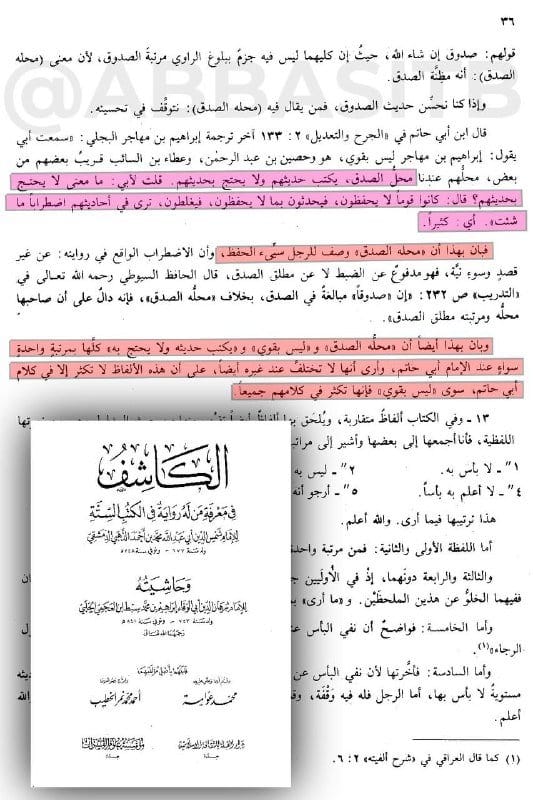 ٣٦
قولهم: صدوق إن شاء الله، حيثُ إن كليهما ليس فيه جزمٌ ببلوغ الراوي مرتبةَ الصدوق، لأن معنى (محله
الصدق): أنه مظِنَّة الصدق.
وإذا كنا نحسِّن حديث الصدوق، فمن يقال فيه (محله الصدق): نتوقَّف في تحسينه.
قال ابن أبي حاتم في «الجرح والتعديل» ٢: ١٣٣ آخر ترجمة إبراهيم بن مهاجر البجلي: «سمعت أبي
يقول: إبراهيم بن مهاجر ليس بقوي، هو وحصين بن عبد الرحمٰن، وعطاء بن السائب قريبٌ بعضهم من
بعض، محلُّهم عندنا محلُ الصدق، يكتب حديثهم ولا يحتج بحديثهم. قلت لأبي: ما معنى لا يحتج
بحديثهم؟ قال: كانوا قوماً لا يحفظون، فيحدثون بما لا يحفظون، فيغلطون، ترى في أحاديثهم اضطراباً ما
شئت». أي: كثيراً.
فبان بهذا أن «محله الصدق» وصف للرجل سيِّىء الحفظ، وأن الاضطراب الواقع في روايته: عن غير
قصدٍ وسوءِ نيَّة، فهو مدفوعٌ عن الضبط لا عن مطلق الصدق، قال الحافظ السيوطي رحمه الله تعالى في
«التدريب» ص ٢٣٢: «إن «صدوقاً» مبالغةٌ في الصدق، بخلاف «محلُّه الصدق»، فإنه دالٌ على أن صاحبها
محلُّه ومرتبته مطلق الصدق».
وبان بهذا أيضاً أن «محلُّه الصدق» و«ليس بقوي» و«يكتب حديثه ولا يحتج به» كلَّها بمرتبةٍ واحدةٍ
سواءٍ عند الإمام أبي حاتم، وأرى أنها لا تختلفُ عند غيره أيضاً، على أن هذه الألفاظ لا تكثر إلا في كلام
أبي حاتم، سوى «ليس بقوي» فإنها تكثر في كلامهم جميعاً.
١٣ - وفي الكتاب ألفاظٌ متقاربة، ويُلحَق
اللفظية، فأنا أجمعها إلى بعضها وأشير إلى
١" - لا بأس به. ٢" - ليس به
٤" - لا أعلم به بأساً. ٥" - أرجو
هذا ترتيبها فيما أرى. والله أعلم.
أما اللفظة الأولى والثانية: فمن مرتبة واحدة
والثالثة والرابعة دونَهما، إذْ في الأُوليين
ففيهما الخلوُّ عن هذين الملحظَين. و«ما أرى»
وأما الخامسة: فواضحٌ أن نفي البأس
الرجاء»(١).
وأما السادسة: فأخَّرتها لأن نفي البأس عن
مستويةٌ لا بأس بها، أما الرجل فله فيه وَقْفة، والله
أعلم.
(١) كما قال العراقي في «شرح ألفيته» ٢: ٦.
الكاشف
في معرفة من له رواية في الكتب الستة
للإمام شمس الدين أبي عبد الله محمد بن أحمد الذهبي الدمشقي
ولد سنة ٦٧٣ - وتوفي سنة ٧٤٨
وحاشيته
للإمام برهان الدين أبي الوفاء إبراهيم بن محمد سبط ابن العجمي الحلبي
رحمهما الله تعالى
محمد عوامة
أحمد محمد نمر الخطيب
جدة
مؤسسة علوم القرآن
جدة
@ABBASITB